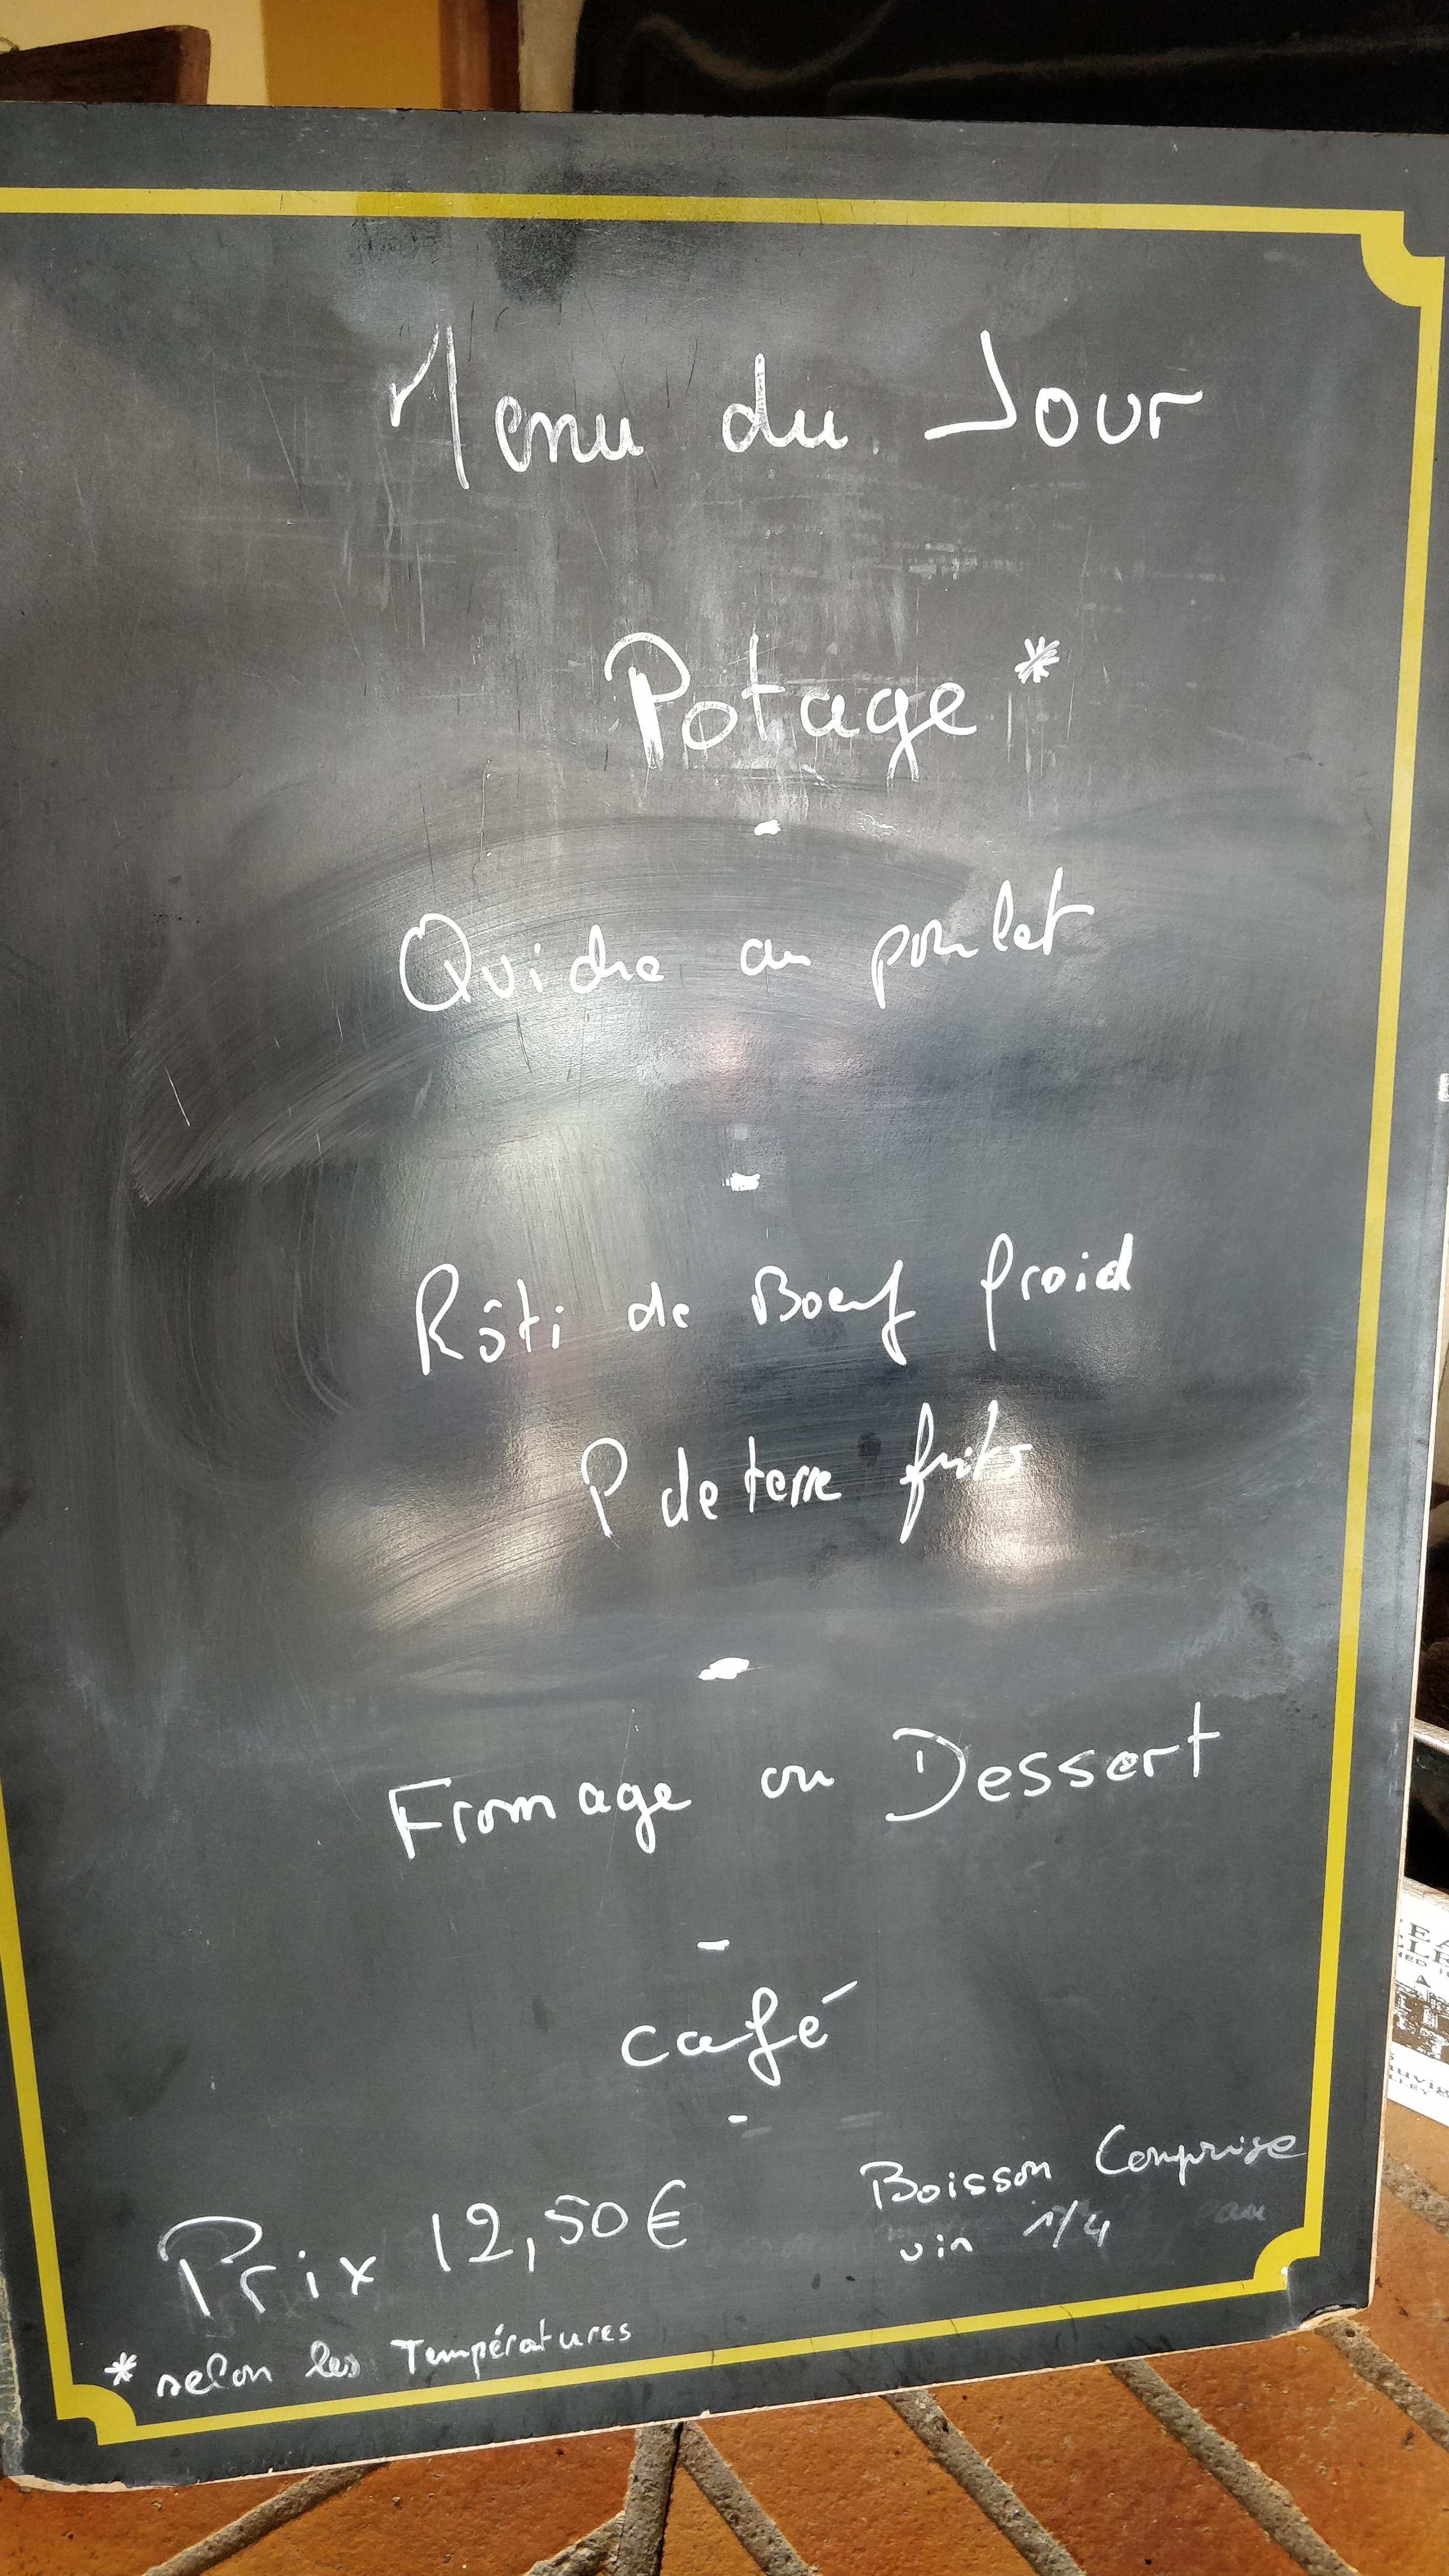 Menu du Jour
Potage *
-
Quiche au poulet
-
Rôti de Boeuf froid
P de terre frits
-
Fromage ou Dessert
-
café
-
Boisson Comprise
Prix 12,50 €
vin 1/4
* selon les Températures